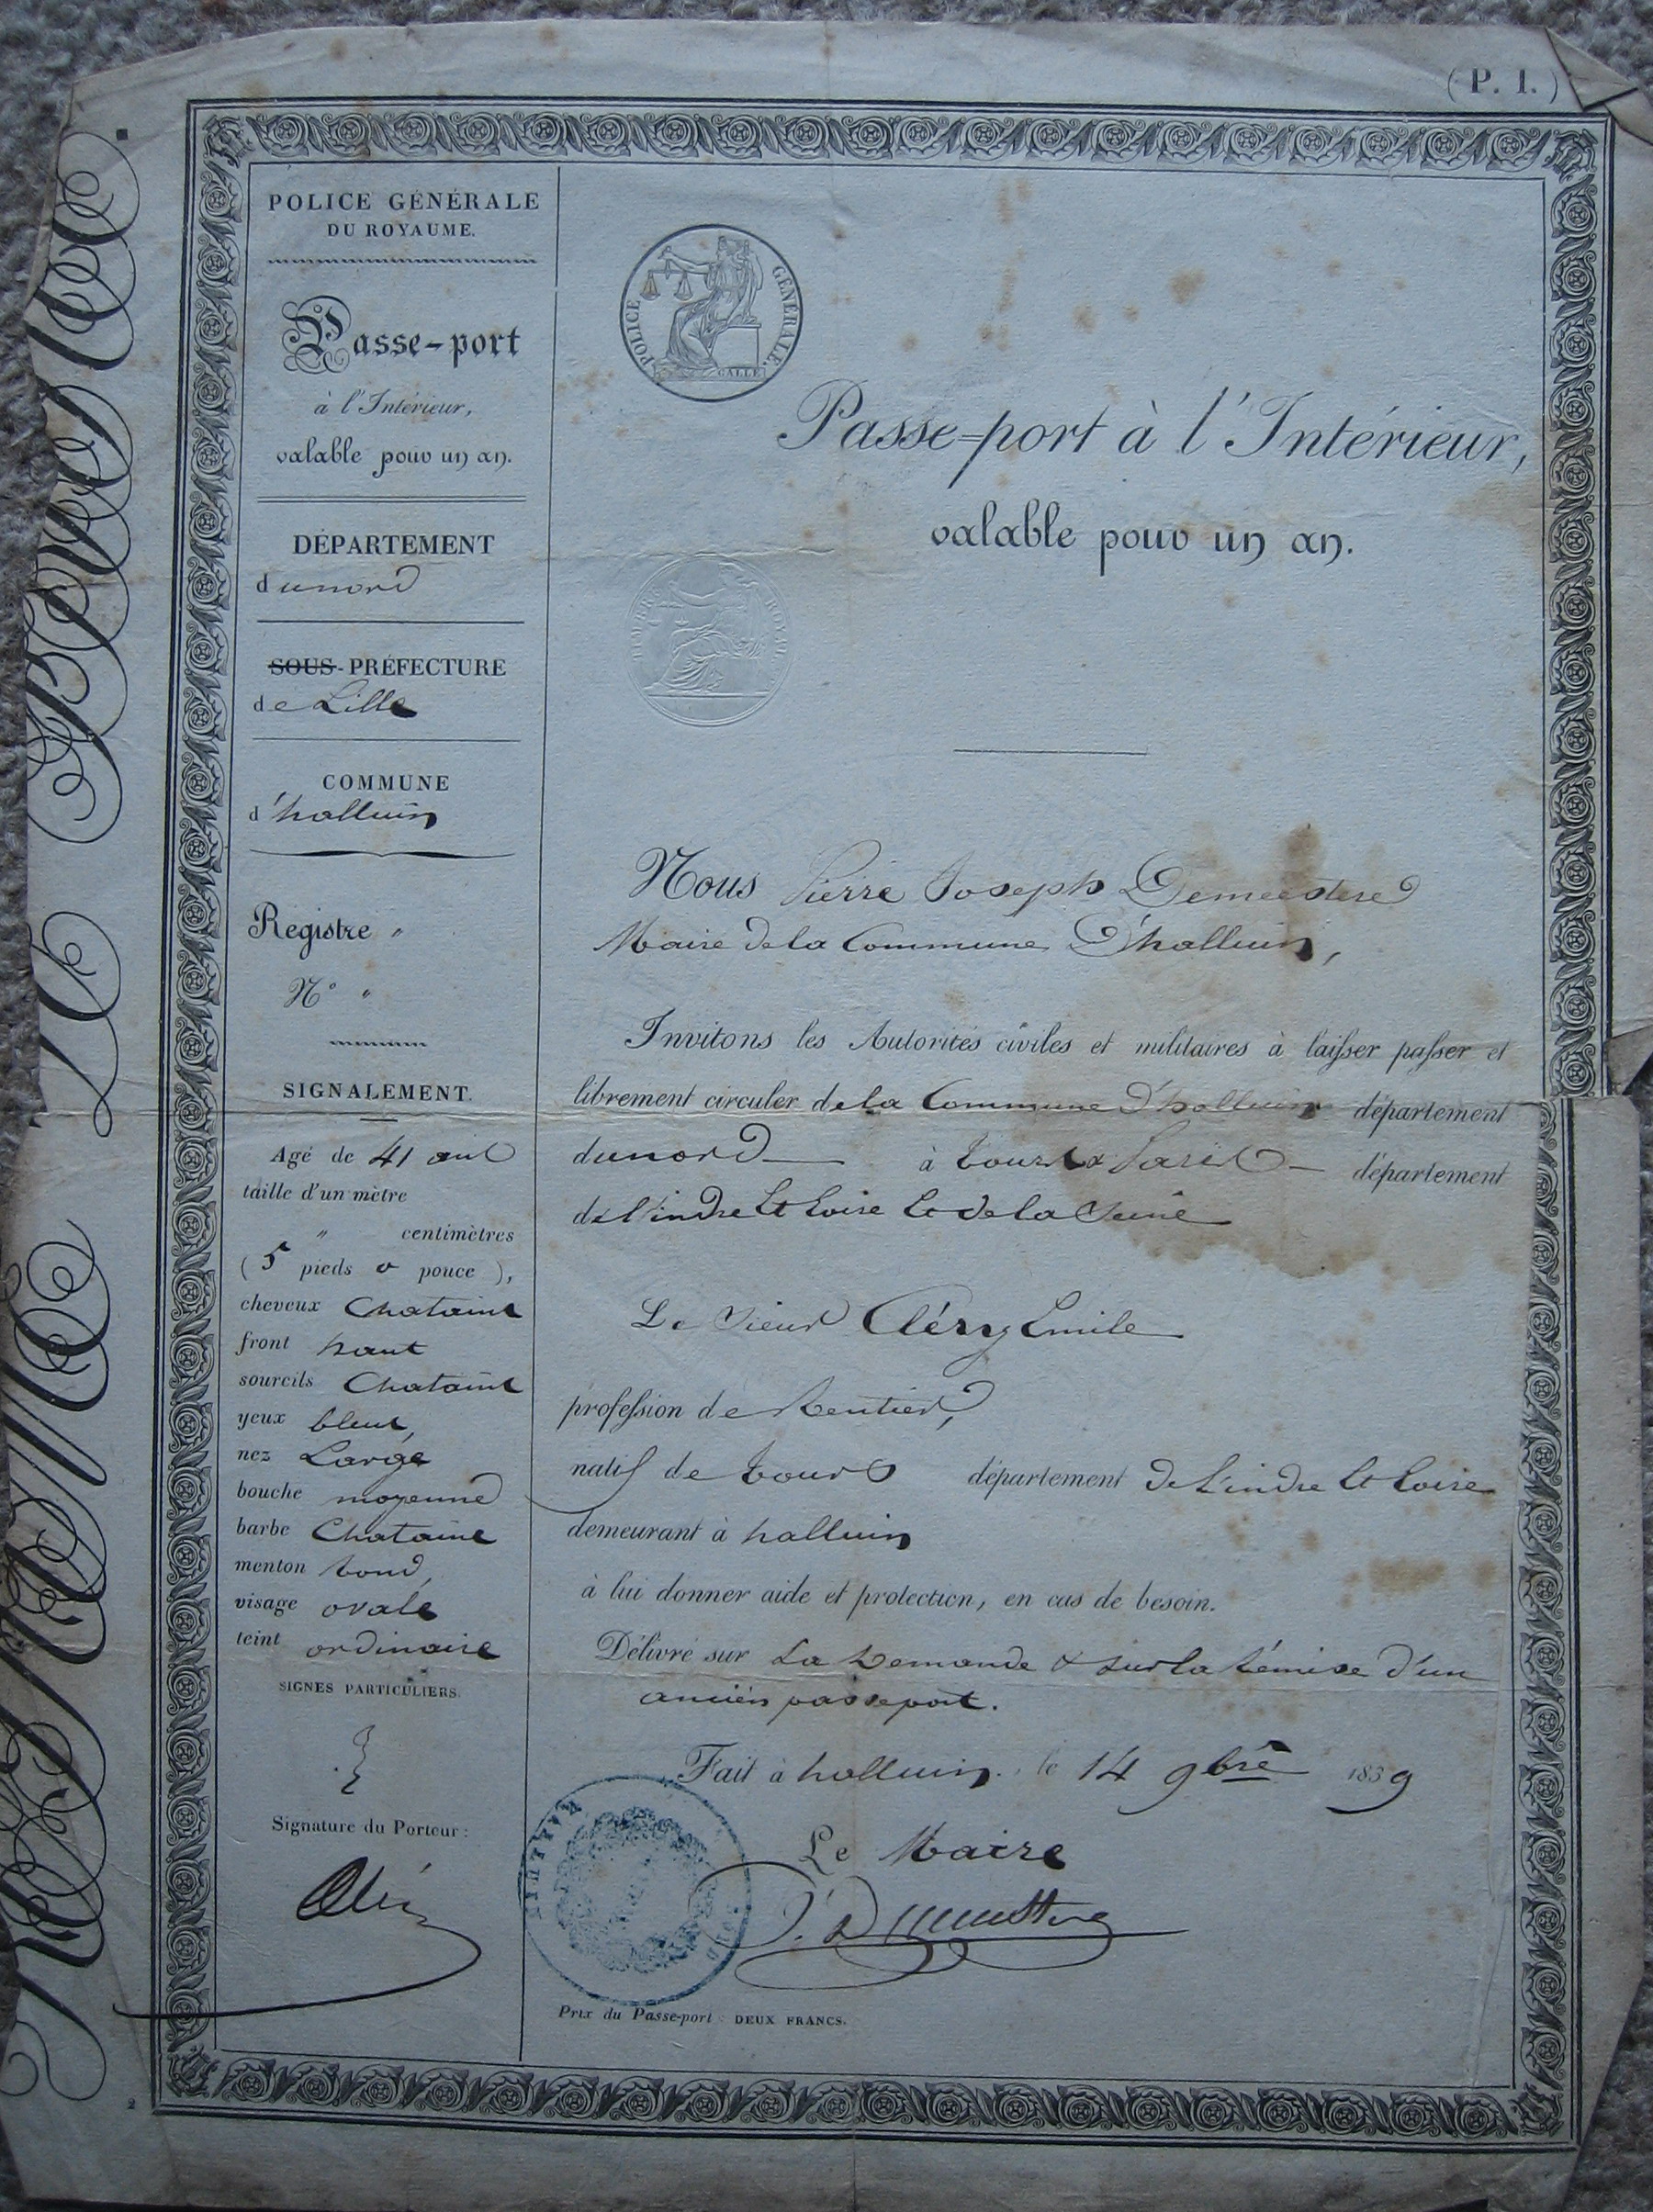 ( P. 1. )
POLICE GÉNÉRALE
DU ROYAUME.
Passe-port
à l'Intérieur,
valable pour un an.
DÉPARTEMENT
du nord
SOUS-PRÉFECTURE
de Lille
COMMUNE
d'halluin
Registre "
N° "
SIGNALEMENT.
Agé de 41 ans
taille d'un mètre
" centimètres
( 5 pieds 0 pouce ),
cheveux Chatains
front haut
sourcils Chatains
yeux bleus,
nez Large
bouche moyenne
barbe Chataine
menton rond,
visage ovale
teint ordinaire
SIGNES PARTICULIERS.
Signature du Porteur :
POLICE GÉNÉRALE.
GALLE
TIMBRE ROYAL
Passe-port à l'Intérieur,
valable pour un an.
Nous Pierre Joseph Demeestere
Maire de la Commune D'halluin,
Invitons les Autorités civiles et militaires à laisser passer et
librement circuler de la Commune D'halluin département
du nord à tours & Paris département
de l'indre Et Loire Et de la Seine
Le Sieur Cléry Emile
profession de Rentier,
natif de tours département De L'indre Et Loire
demeurant à halluin
à lui donner aide et protection, en cas de besoin.
Délivré sur La Demande & sur la Rémise d'un
ancien passeport.
Fait à halluin. le 14 9bre 1839
Le Maire
P. J. Demeestere
Prix du Passe-port : DEUX FRANCS.
2